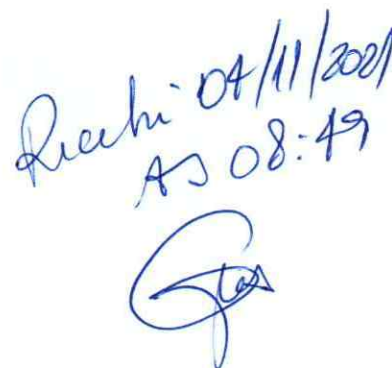 Recebi 04/11/2021
AS 08:49